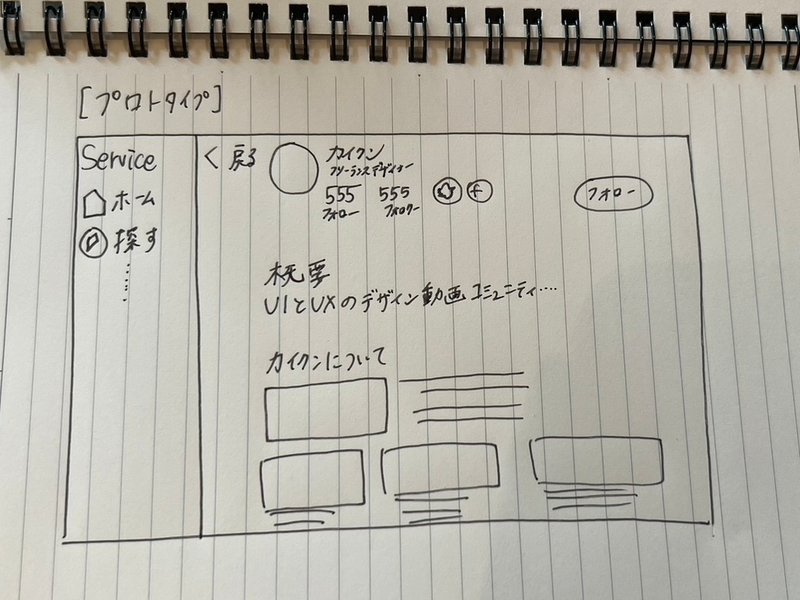 [プロトタイプ]
Service
ホーム
探す
く 戻る
カイクン
フリーランスデザイナー
555
フォロー
555
フォロワー
フォロー
概要
UIとUXのデザイン動画コミュニティ....
カイクンについて